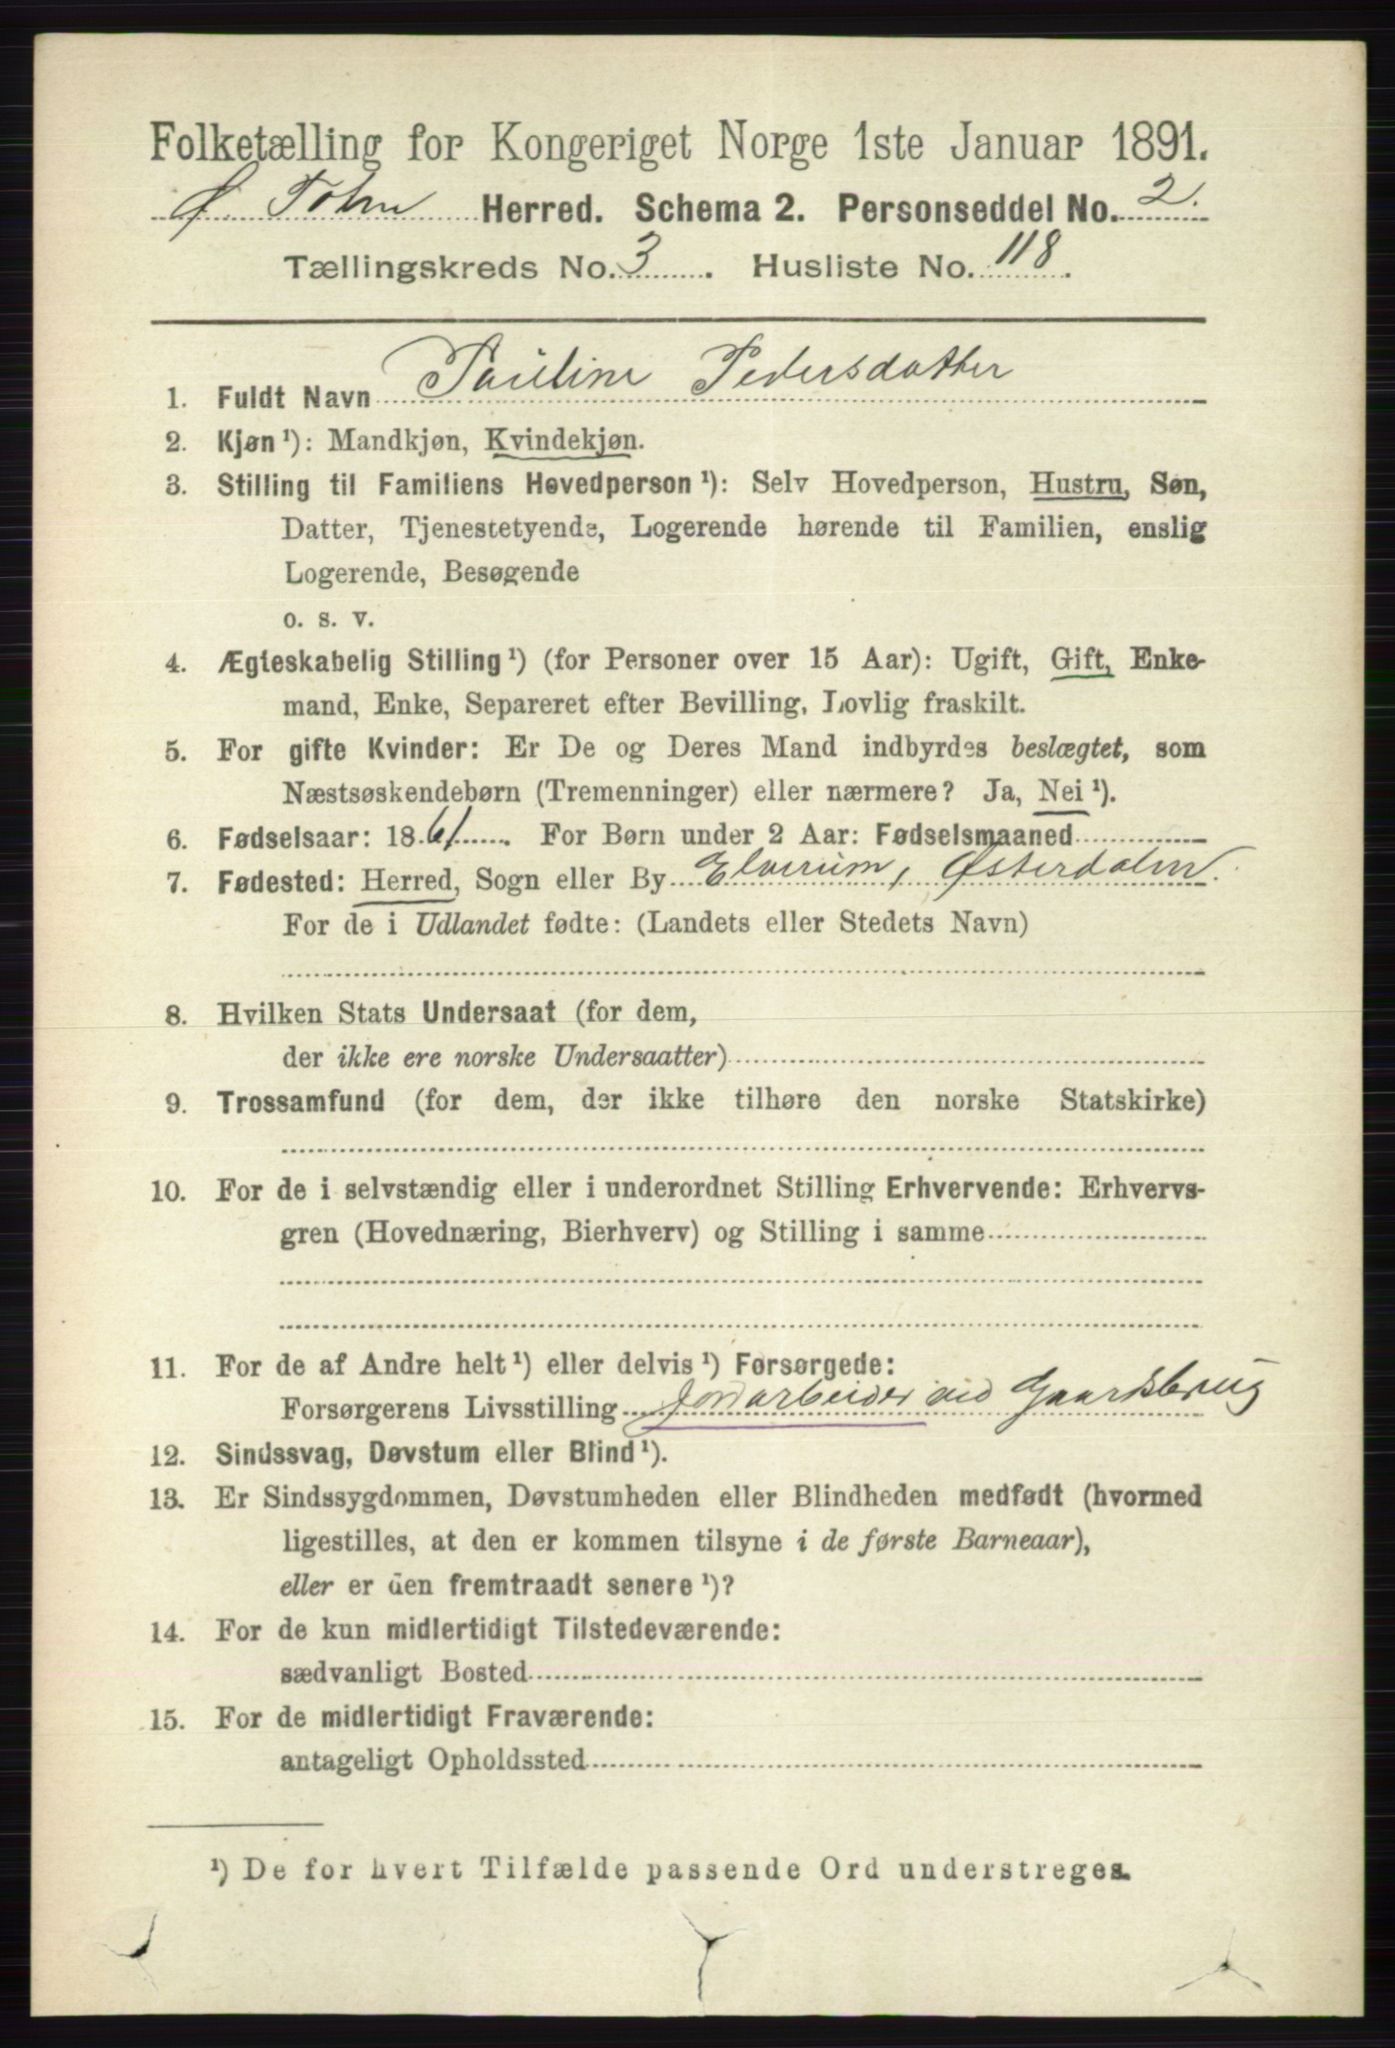 Folketælling for Kongeriget Norge 1ste Januar 1891.
Ø. Toten Herred. Schema 2. Personseddel No. 2.
Tællingskreds No. 3. Husliste No. 118.
1. Fuldt Navn Pauline Pedersdatter
2. Kjøn ¹): Mandkjøn, Kvindekjøn.
3. Stilling til Familiens Hovedperson ¹): Selv Hovedperson, Hustru, Søn,
Datter, Tjenestetyende, Logerende hørende til Familien, enslig
Logerende, Besøgende
o. s. v.
4. Ægteskabelig Stilling ¹) (for Personer over 15 Aar): Ugift, Gift, Enke-
mand, Enke, Separeret efter Bevilling, Lovlig fraskilt.
5. For gifte Kvinder: Er De og Deres Mand indbyrdes beslægtet, som
Næstsøskendebørn (Tremenninger) eller nærmere? Ja, Nei ¹).
6. Fødselsaar: 1861. For Børn under 2 Aar: Fødselsmaaned
7. Fødested: Herred, Sogn eller By Elverum, Østerdalen.
For de i Udlandet fødte: (Landets eller Stedets Navn)
8. Hvilken Stats Undersaat (for dem,
der ikke ere norske Undersaatter)
9. Trossamfund (for dem, der ikke tilhøre den norske Statskirke)
10. For de i selvstændig eller i underordnet Stilling Erhvervende: Erhvervs-
gren (Hovednæring, Bierhverv) og Stilling i samme
11. For de af Andre helt ¹) eller delvis ¹) Forsørgede:
Forsørgerens Livsstilling Jordarbeider ved Gaardsbrug
12. Sindssvag, Døvstum eller Blind ¹).
13. Er Sindssygdommen, Døvstumheden eller Blindheden medfødt (hvormed
ligestilles, at den er kommen tilsyne i de første Barneaar),
eller er den fremtraadt senere ¹)?
14. For de kun midlertidigt Tilstedeværende:
sædvanligt Bosted
15. For de midlertidigt Fraværende:
antageligt Opholdssted
¹) De for hvert Tilfælde passende Ord understreges.